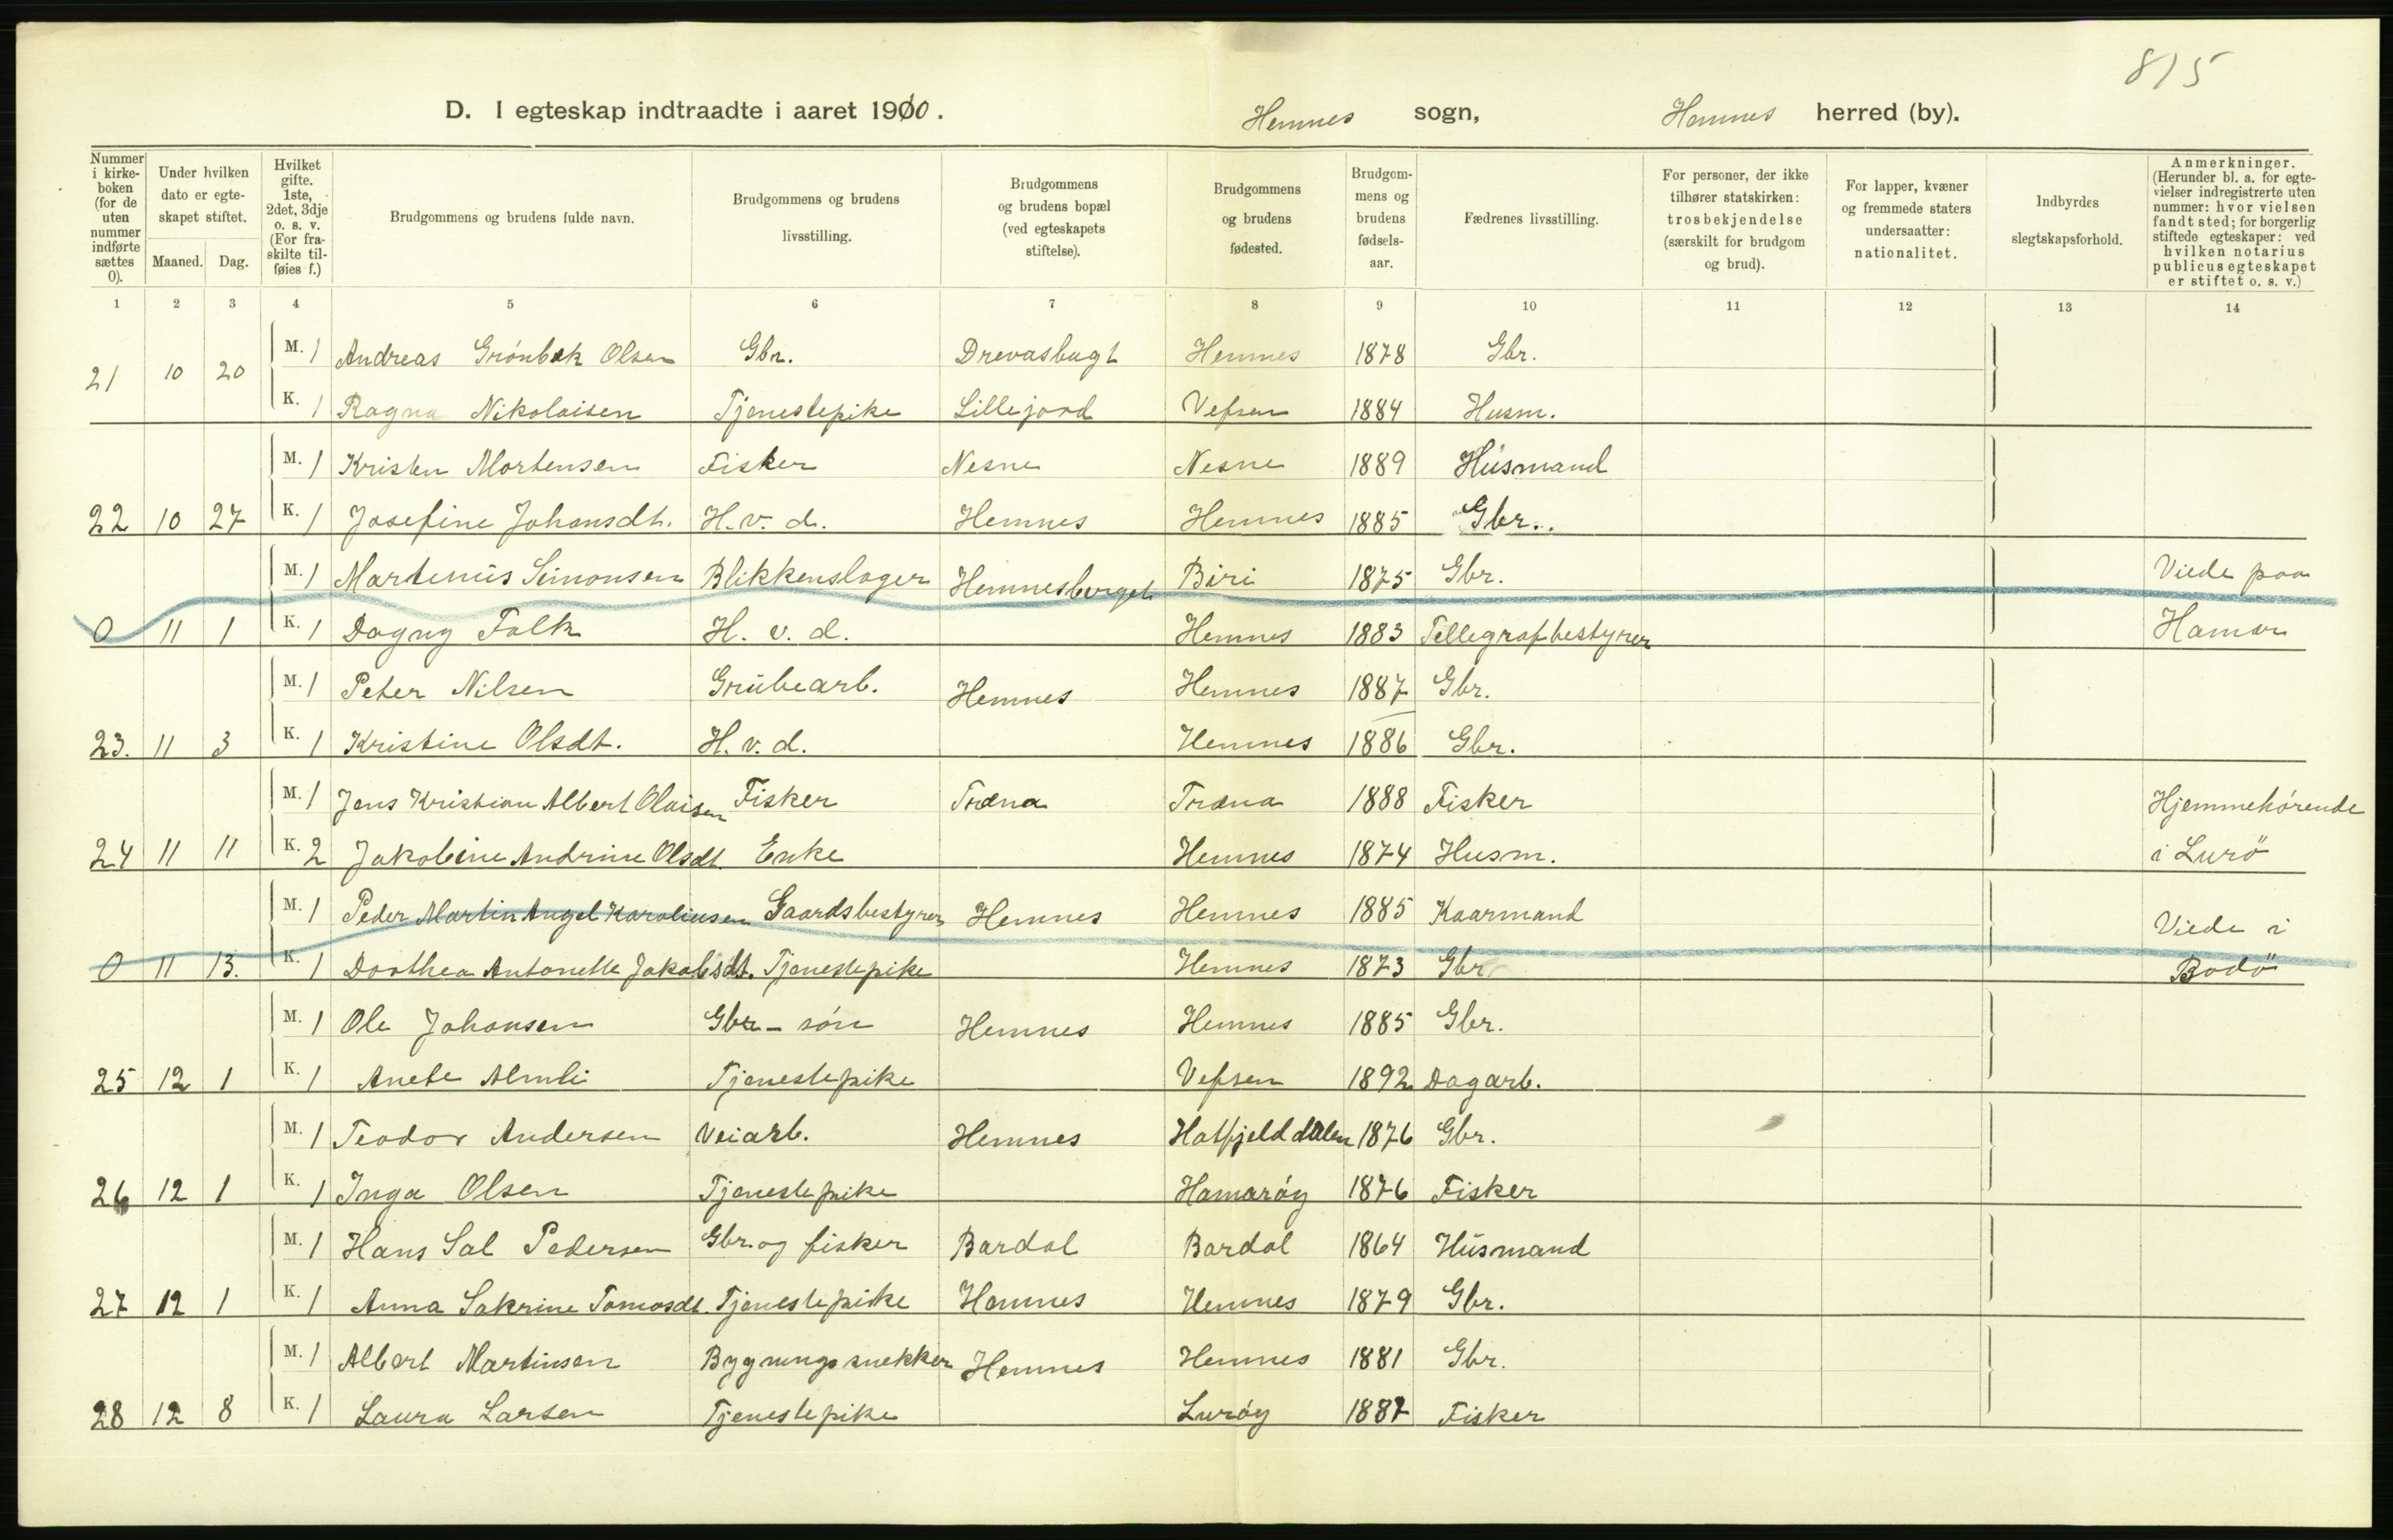 815
D. I egteskap indtraadte i aaret 1910. Hemnes sogn, Hemnes herred (by).
Nummer i kirkeboken (for de uten nummer indførte sættes 0).
Under hvilken dato er egteskapet stiftet.
Maaned. Dag.
Hvilket gifte. 1ste, 2det, 3dje o. s. v. (For fraskilte tilføies f.)
Brudgommens og brudens fulde navn.
Brudgommens og brudens livsstilling.
Brudgommens og brudens bopæl (ved egteskapets stiftelse).
Brudgommens og brudens fødested.
Brudgommens og brudens fødselsaar.
Fædrenes livsstilling.
For personer, der ikke tilhører statskirken: trosbekjendelse (særskilt for brudgom og brud).
For lapper, kvæner og fremmede staters undersaatter: nationalitet.
Indbyrdes slegtskapsforhold.
Anmerkninger. (Herunder bl. a. for egtevielser indregistrerte uten nummer: hvor vielsen fandt sted; for borgerlig stiftede egteskaper: ved hvilken notarius publicus egteskapet er stiftet o. s. v.)
1 2 3 4 5 6 7 8 9 10 11 12 13 14
M. 1 Andreas Grönbæk Olsen Gbr. Drevasbugt Hemnes 1878 Gbr.
21 10 20
K. 1 Ragna Nikolaisen Tjenestepike Lillejord Vefsen 1884 Husm.
M. 1 Kristen Mortensen Fisker Nesne Nesne 1889 Husmand
22 10 27 K. 1 Josefine Johansdt. H. v. d. Hemnes Hemnes 1885 Gbr.
M. 1 Martenus Simonsen Blikkenslager Hemnesberget Biri 1875 Gbr. Viede paa
0 11 1 K. 1 Dagny Falk H. v. d. Hemnes 1883 Tellegrafbestyrer Hamar
M. 1 Peter Nilsen Grubearb. Hemnes Hemnes 1887 Gbr.
23. 11 3 K. 1 Kristine Olsdt. H. v. d. Hemnes 1886 Gbr.
M. 1 Jens Kristian Albert Olaisen Fisker Træna Træna 1888 Fisker Hjemmehörende
24 11 11 K. 2 Jakobine Andrine Olsdt. Enke Hemnes 1874 Husm. i Lurö
M. 1 Peder Martin Angel Karoliusen Gaardsbestyrer Hemnes Hemnes 1885 Kaarmand Viede i
0 11 13. K. 1 Dorthea Antonette Jakobsdt. Tjenestepike Hemnes 1873 Gbr Bodö
M. 1 Ole Johansen Gbr - sön Hemnes Hemnes 1885 Gbr.
25 12 1 K. 1 Anete Almli Tjenestepike Vefsen 1892 Dagarb.
M. 1 Teodor Andersen Veiarb. Hemnes Hatfjelddalen 1876 Gbr.
26 12 1 K. 1 Inga Olsen Tjenestepike Hamaröy 1876 Fisker
M. 1 Hans Sal Pedersen Gbr. og fisker Bardal Bardal 1864 Husmand
27 12 1 K. 1 Anna Sakrine Tomasdt. Tjenestepike Hemnes Hemnes 1879 Gbr.
M. 1 Albert Martinsen Bygningssnekker Hemnes Hemnes 1881 Gbr.
28 12 8 K. 1 Laura Larsen Tjenestepike Luröy 1887 Fisker